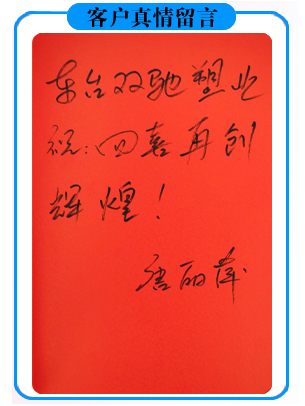 客户真情留言
东台双驰塑业
祝:四喜再创
辉煌!
唐丽萍